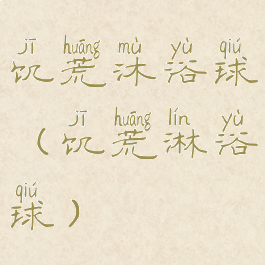 jī huāng mù yù qiú
饥荒沐浴球
jī huāng lín yù
（饥荒淋浴
qiú
球）